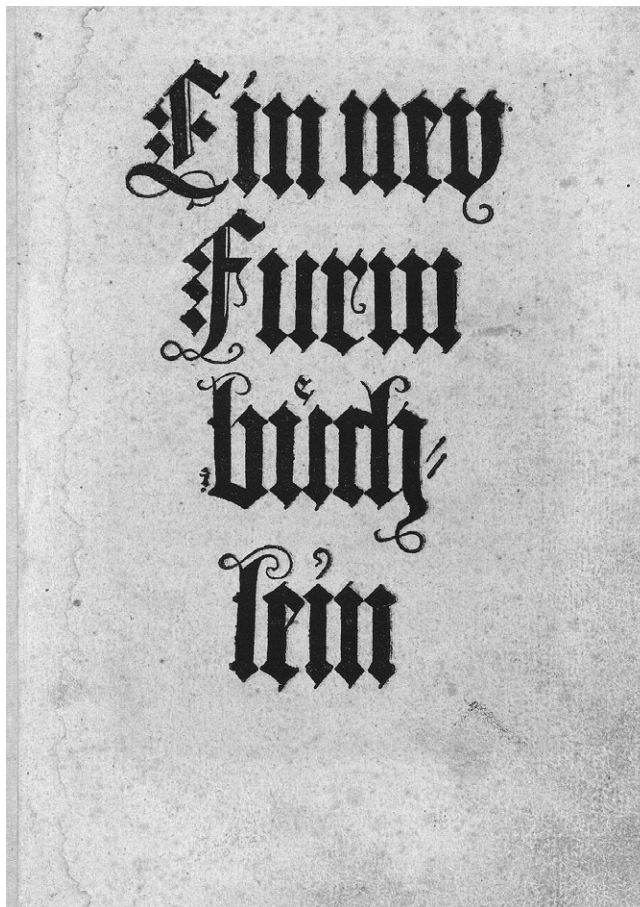 Ein new
Furm
buͤch⸗
lein